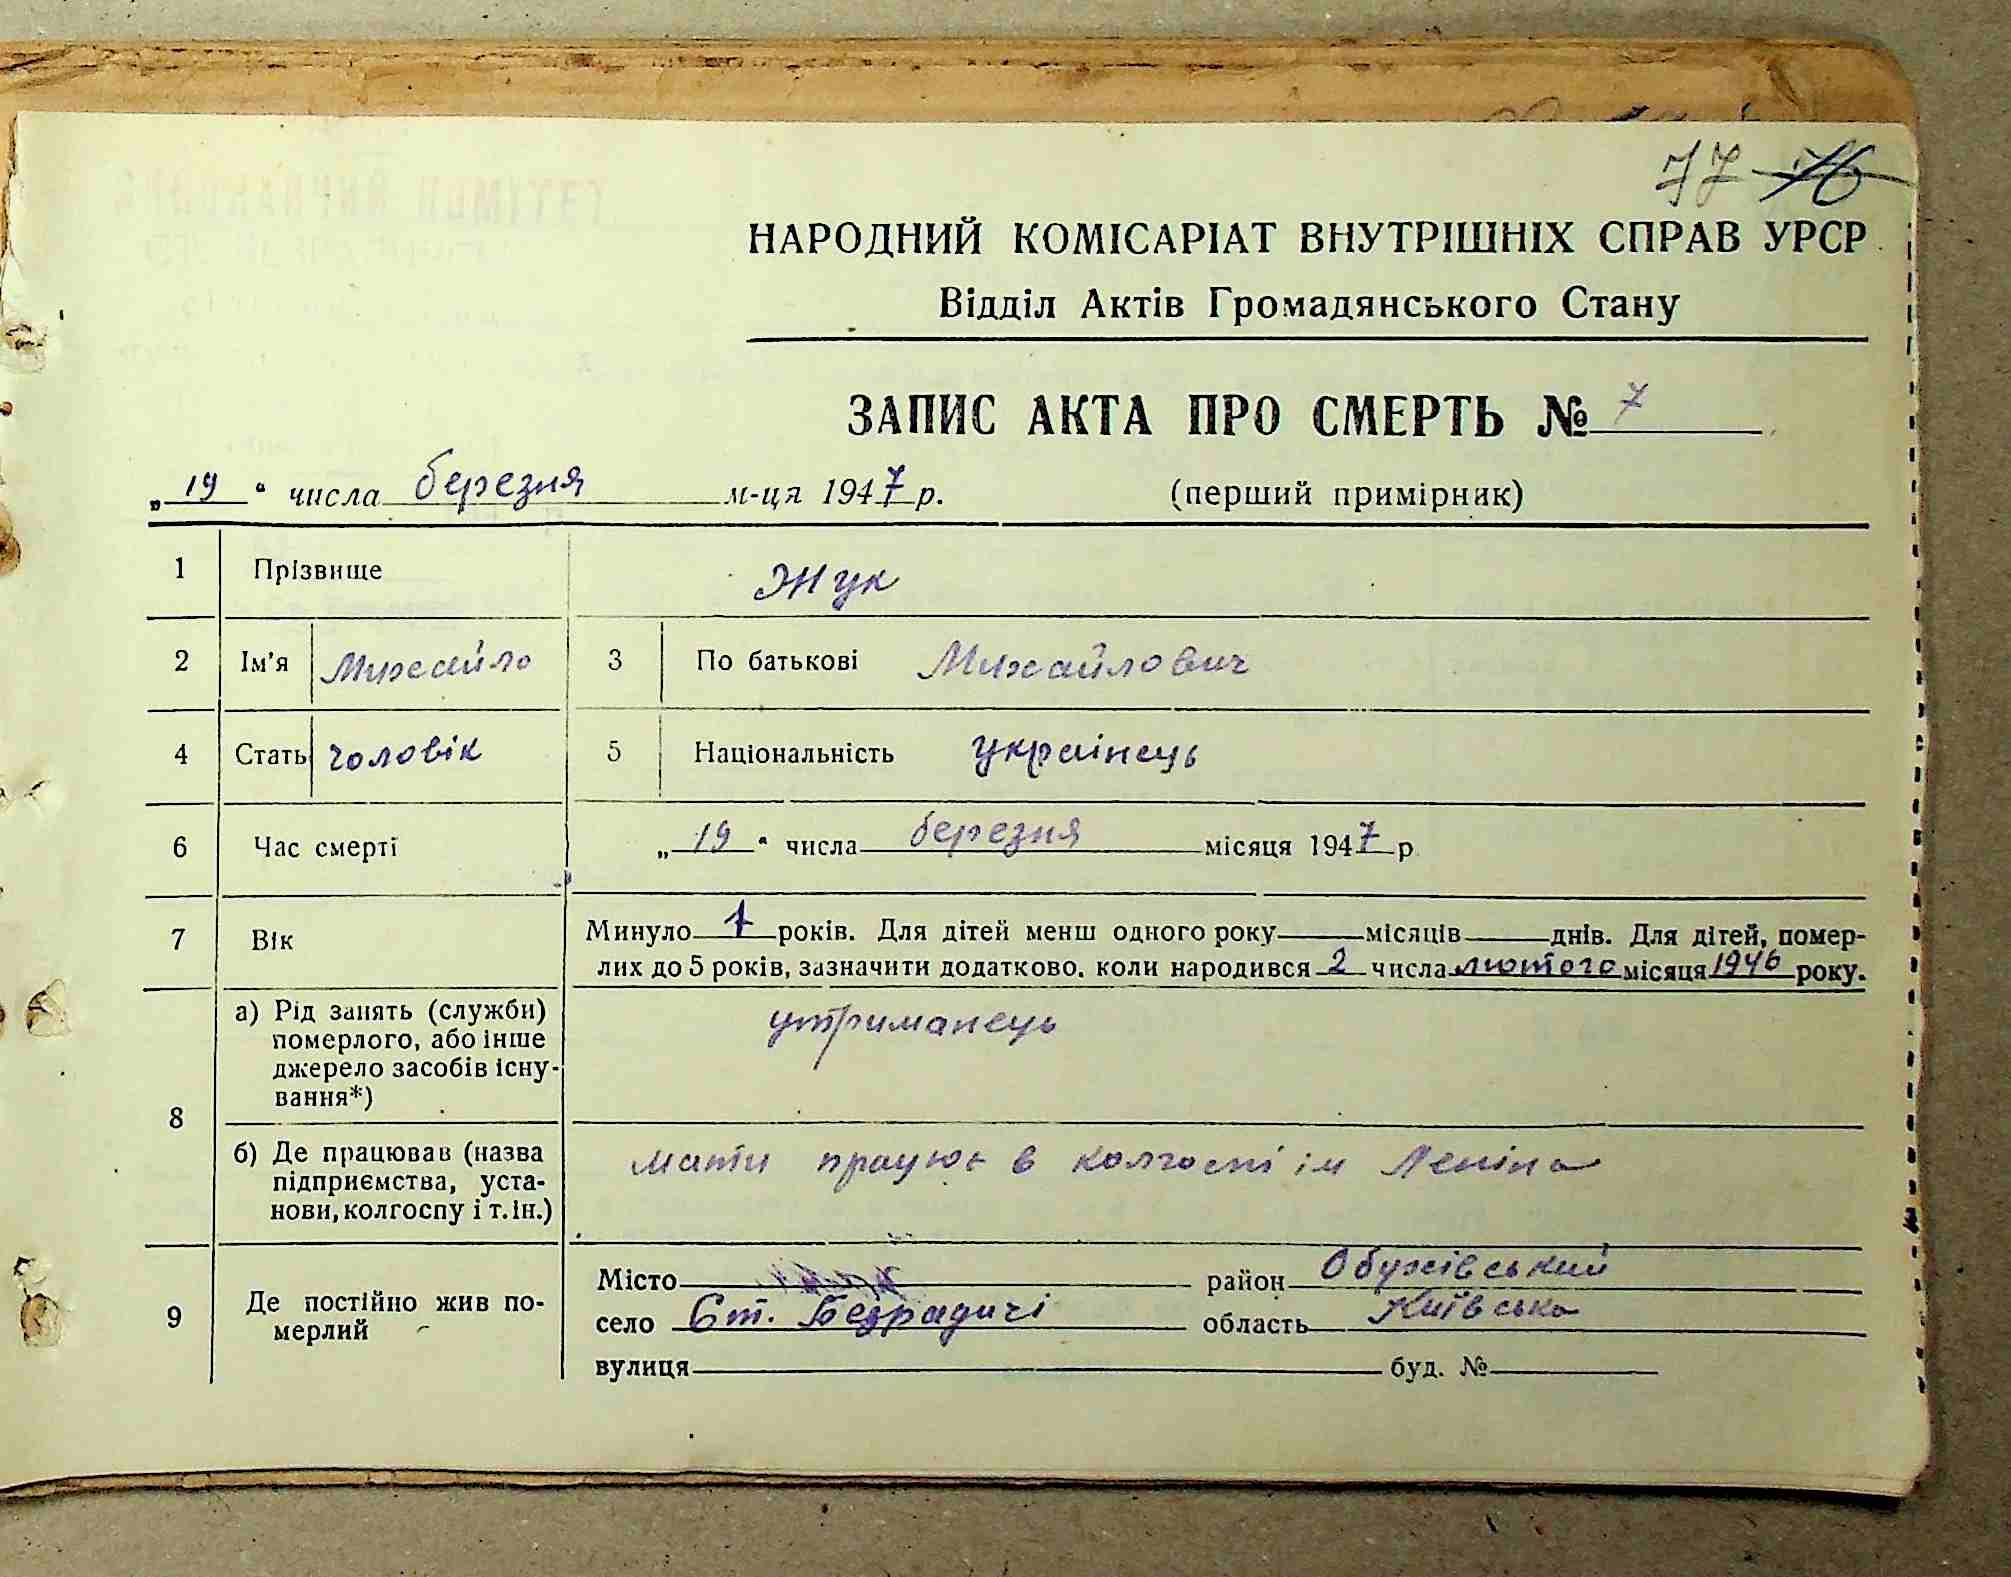 77 76
НАРОДНИЙ КОМІСАРІАТ ВНУТРІШНІХ СПРАВ УРСР
Відділ Актів Громадянського Стану
ЗАПИС АКТА ПРО СМЕРТЬ № 7
„19“ числа березня м-ця 1947 р. (перший примірник)
1 Прізвище Жук
2 Ім'я Михайло 3 По батькові Михайлович
4 Стать чоловік 5 Національність українець
6 Час смерті „19“ числа березня місяця 1947 р
7 Вік Минуло 1 років. Для дітей менш одного року місяців днів. Для дітей, помер-
лих до 5 років, зазначити додатково, коли народився 2 числа лютого місяця 1946 року.
8 а) Рід занять (служби)
померлого, або інше
джерело засобів існу-
вання*)
утриманець
б) Де працював (назва
підприємства, уста-
нови, колгоспу і т. ін.)
мати працює в колгоспі ім Леніна
9 Де постійно жив по-
мерлий
Місто район Обухівський
село Ст. Безрадичі область Київська
вулиця буд. №